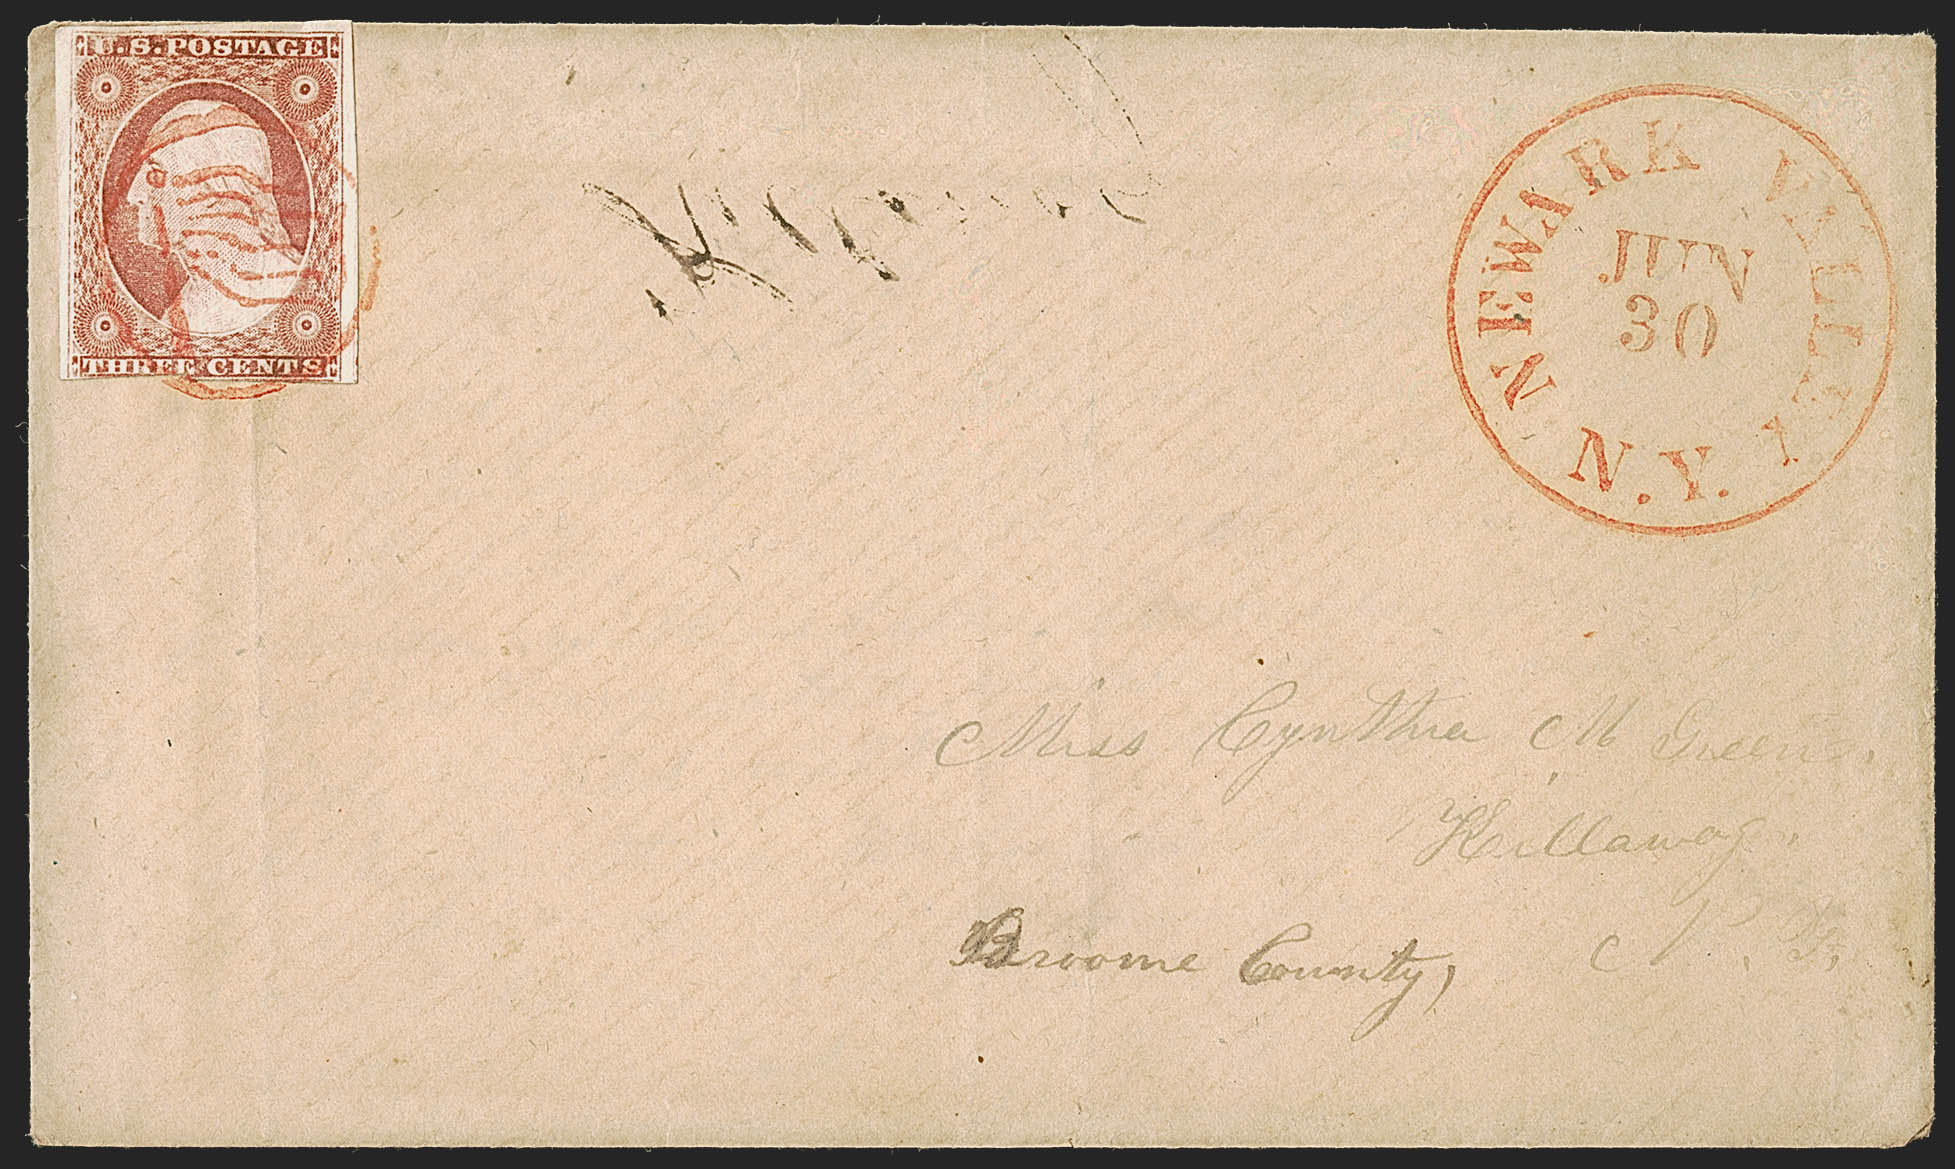 U.S.POSTAGE
THREE CENTS
NEWARK VALLEY
N.Y.
JUN
30
Miss Cynthia M Green,
Killawog,
Broome County, N. Y.